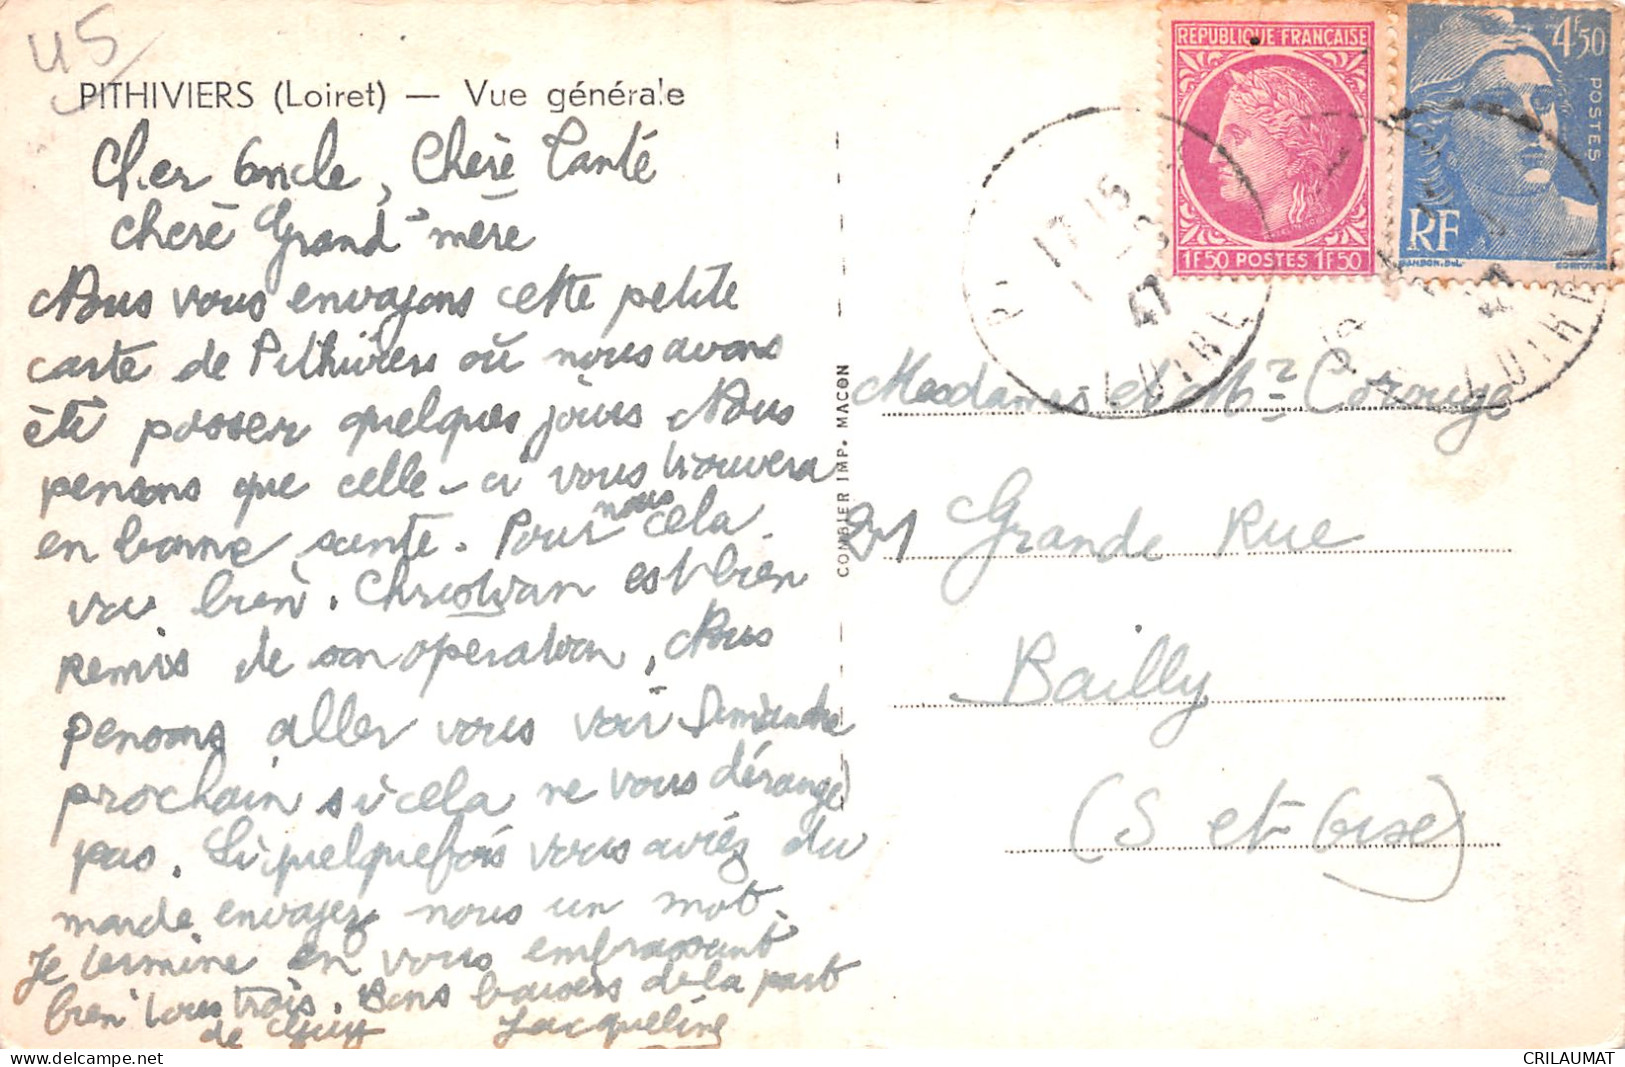 45
PITHIVIERS (Loiret) — Vue générale
Cher Oncle, Chère Tante
chère Grand'mère
Nous vous envoyons cette petite
carte de Pithiviers où nous avons
été passer quelques jours. Nous
pensons que celle-ci vous trouvera
en bonne santé. Pour nous cela
va bien. Christian est bien
remis de son operation. Nous
pensons aller vous voir Dimanche
prochain si cela ne vous dérange
pas. Si quelquefois vous aviez du
monde envoyez nous un mot.
Je termine en vous embrassant
bien tous trois. Bons baisers de la part
de Guy Jacqueline
COMBIER IMP. MACON
REPUBLIQUE FRANÇAISE
1F50 POSTES 1F50
4F50
POSTES
RF
GANDON. Del.
17 15
47
LOIRET
47
LOIRET
Mesdames et Mr Corouge
21 Grande Rue
Bailly
(S et Oise)
CRILAUMAT